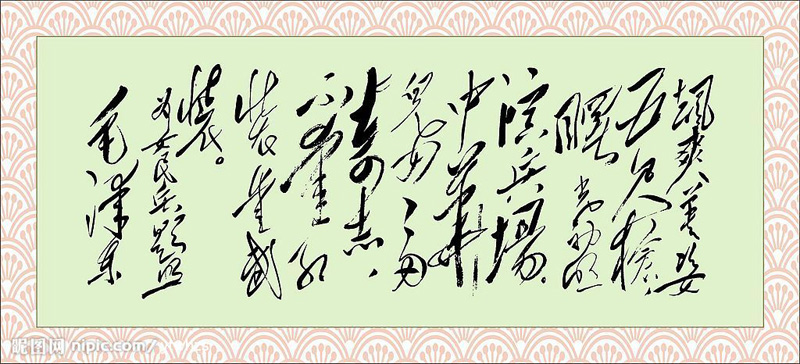 飒爽英姿
五尺槍，
曙光初照
演兵場。
中華
兒女多
奇志，
不愛红
装愛武
装。
为女民兵题照
毛泽东
昵图网 nipic.com/